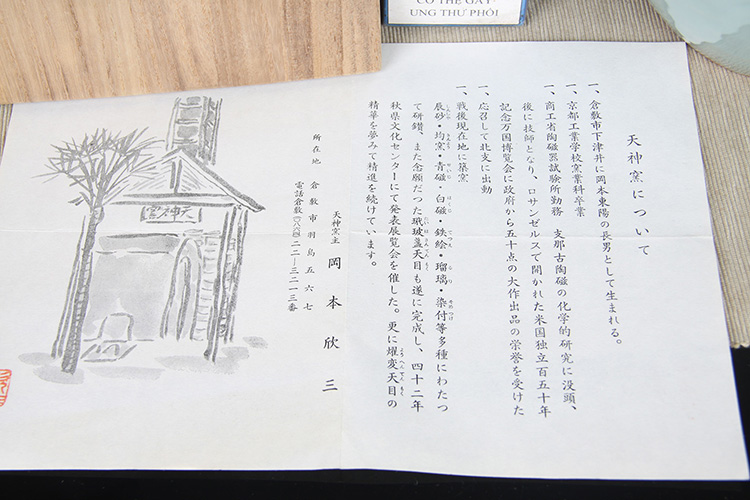 CÓ THỂ GÂY
UNG THƯ PHỔI
天神窯について
一、倉敷市下津井に岡本東陽の長男として生まれる。
一、京都工業学校窯業科卒業
一、商工省陶磁器試験所勤務 支那古陶磁の化学的研究に没頭、
後に技師となり、ロサンゼルスで開かれた米国独立百五十年
記念万国博覧会に政府から五十点の大作出品の栄誉を受けた
一、応召して北支に出動
一、戦後現在地に築窯
辰砂・均窯・青磁・白磁・鉄絵・瑠璃・染付等多種にわたつ
て研鑽、また念願だつた玳玻盞天目も遂に完成し、四十二年
秋県文化センターにて発表展覧会を催した。更に燿変天目の
精華を夢みて精進を続けています。
天神窯主 岡本欣三
所在地 倉敷市羽島五六七
電話倉敷(〇八六四)二二ー三二一三番
天神窯